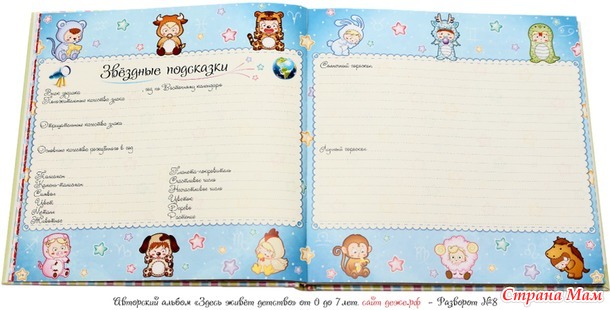 Звёздные подсказки
год по Восточному календарю
Положительные качества знака
Отрицательные качества знака
Талисман
Камень-талисман
Символ
Цвет
Металл
Животное
Планета-покровитель
Счастливые числа
Несчастливые числа
Цветы
Дерево
Растение
Солнечный гороскоп
Лунный гороскоп
Авторский альбом «Здесь живёт детство» от 0 до 7 лет. сайт деже.рф - Разворот №8
Страна Мам